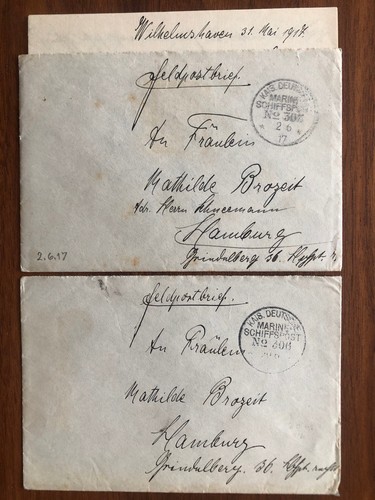 Wilhelmshaven 31. Mai 1917.
Feldpostbrief.
KAIS. DEUTSCHE
MARINE-
SCHIFFSPOST
No
2 6
17
An Fräulein
Mathilde Brozeit
Adr. Herrn
Hamburg
2.6.17
Grindelberg 36.
Feldpostbrief.
KAIS. DEUTSCHE
MARINE-
SCHIFFSPOST
No 306
An Fräulein
Mathilde Brozeit
Hamburg
Grindelberg 36.